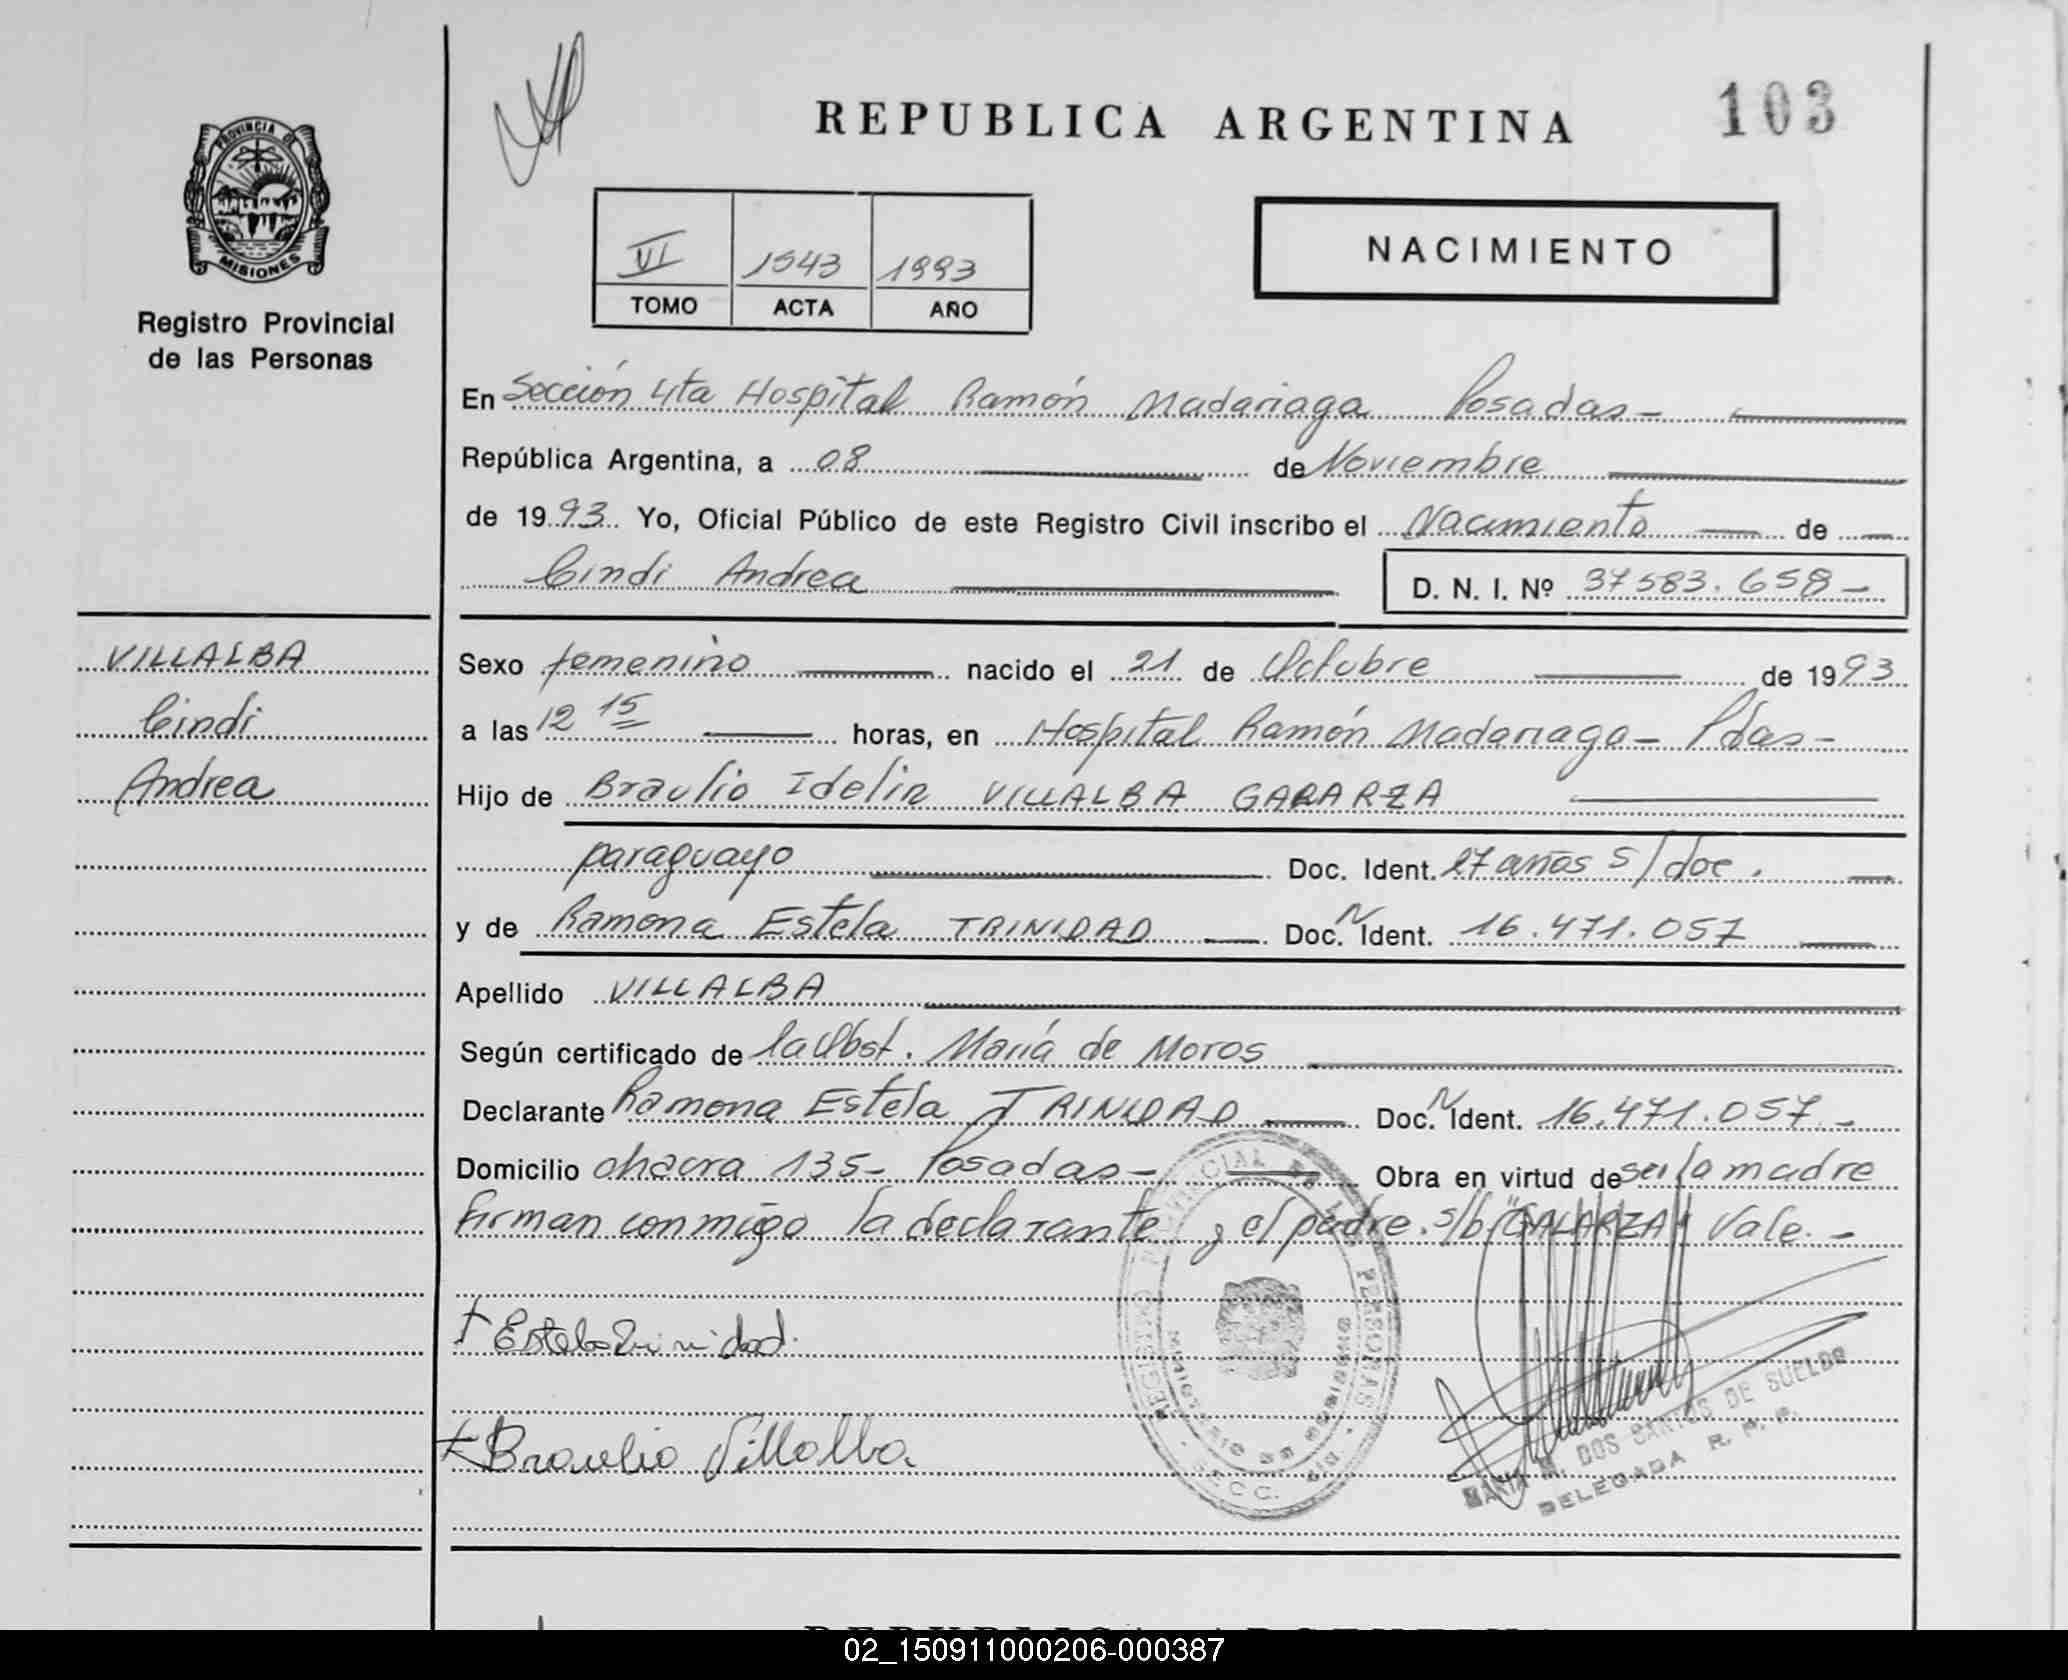 REPUBLICA ARGENTINA
103
PROVINCIA DE
MISIONES
Registro Provincial
de las Personas
VI 1543 1993
TOMO ACTA AÑO
NACIMIENTO
En Sección 4ta Hospital Ramón Madariaga Posadas-
República Argentina, a 08 de Noviembre
de 1993 Yo, Oficial Público de este Registro Civil inscribo el Nacimiento de
Cindi Andrea D. N. I. Nº 37583.658-
VILLALBA
Cindi
Andrea
Sexo femenino nacido el 21 de Octubre de 1993
a las 12 15 horas, en Hospital Ramón Madariaga- Pdas-
Hijo de Braulio Idelin VILLALBA GARARZA
paraguayo Doc. Ident. 27 años s/doc.
y de Ramona Estela TRINIDAD Doc. N Ident. 16.471.057
Apellido VILLALBA
Según certificado de la Obst. María de Moros
Declarante Ramona Estela TRINIDAD Doc. N Ident. 16.471.057.-
Domicilio chacra 135- Posadas- Obra en virtud de ser la madre
Firman conmigo la declarante y el padre. s/b "GALARZA" Vale.-
Estela Trinidad.
Braulio Villalba.
REGISTRO PROVINCIAL DE LAS PERSONAS
SECC.
MARIA M. DOS SANTOS DE SUELDO
DELEGADA R. P. P.
02_150911000206-000387